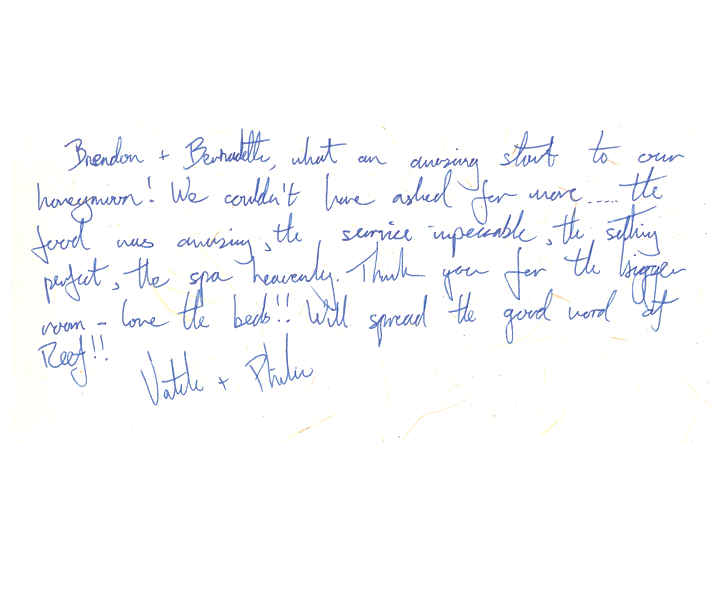 Brendon + Bernadette, what an amazing start to our
honeymoon! We couldn't have asked for more..... the
food was amazing, the service impeccable, the setting
perfect, the spa heavenly. Thank you for the bigger
room - love the beds!! Will spread the good word of
Reef!!
+